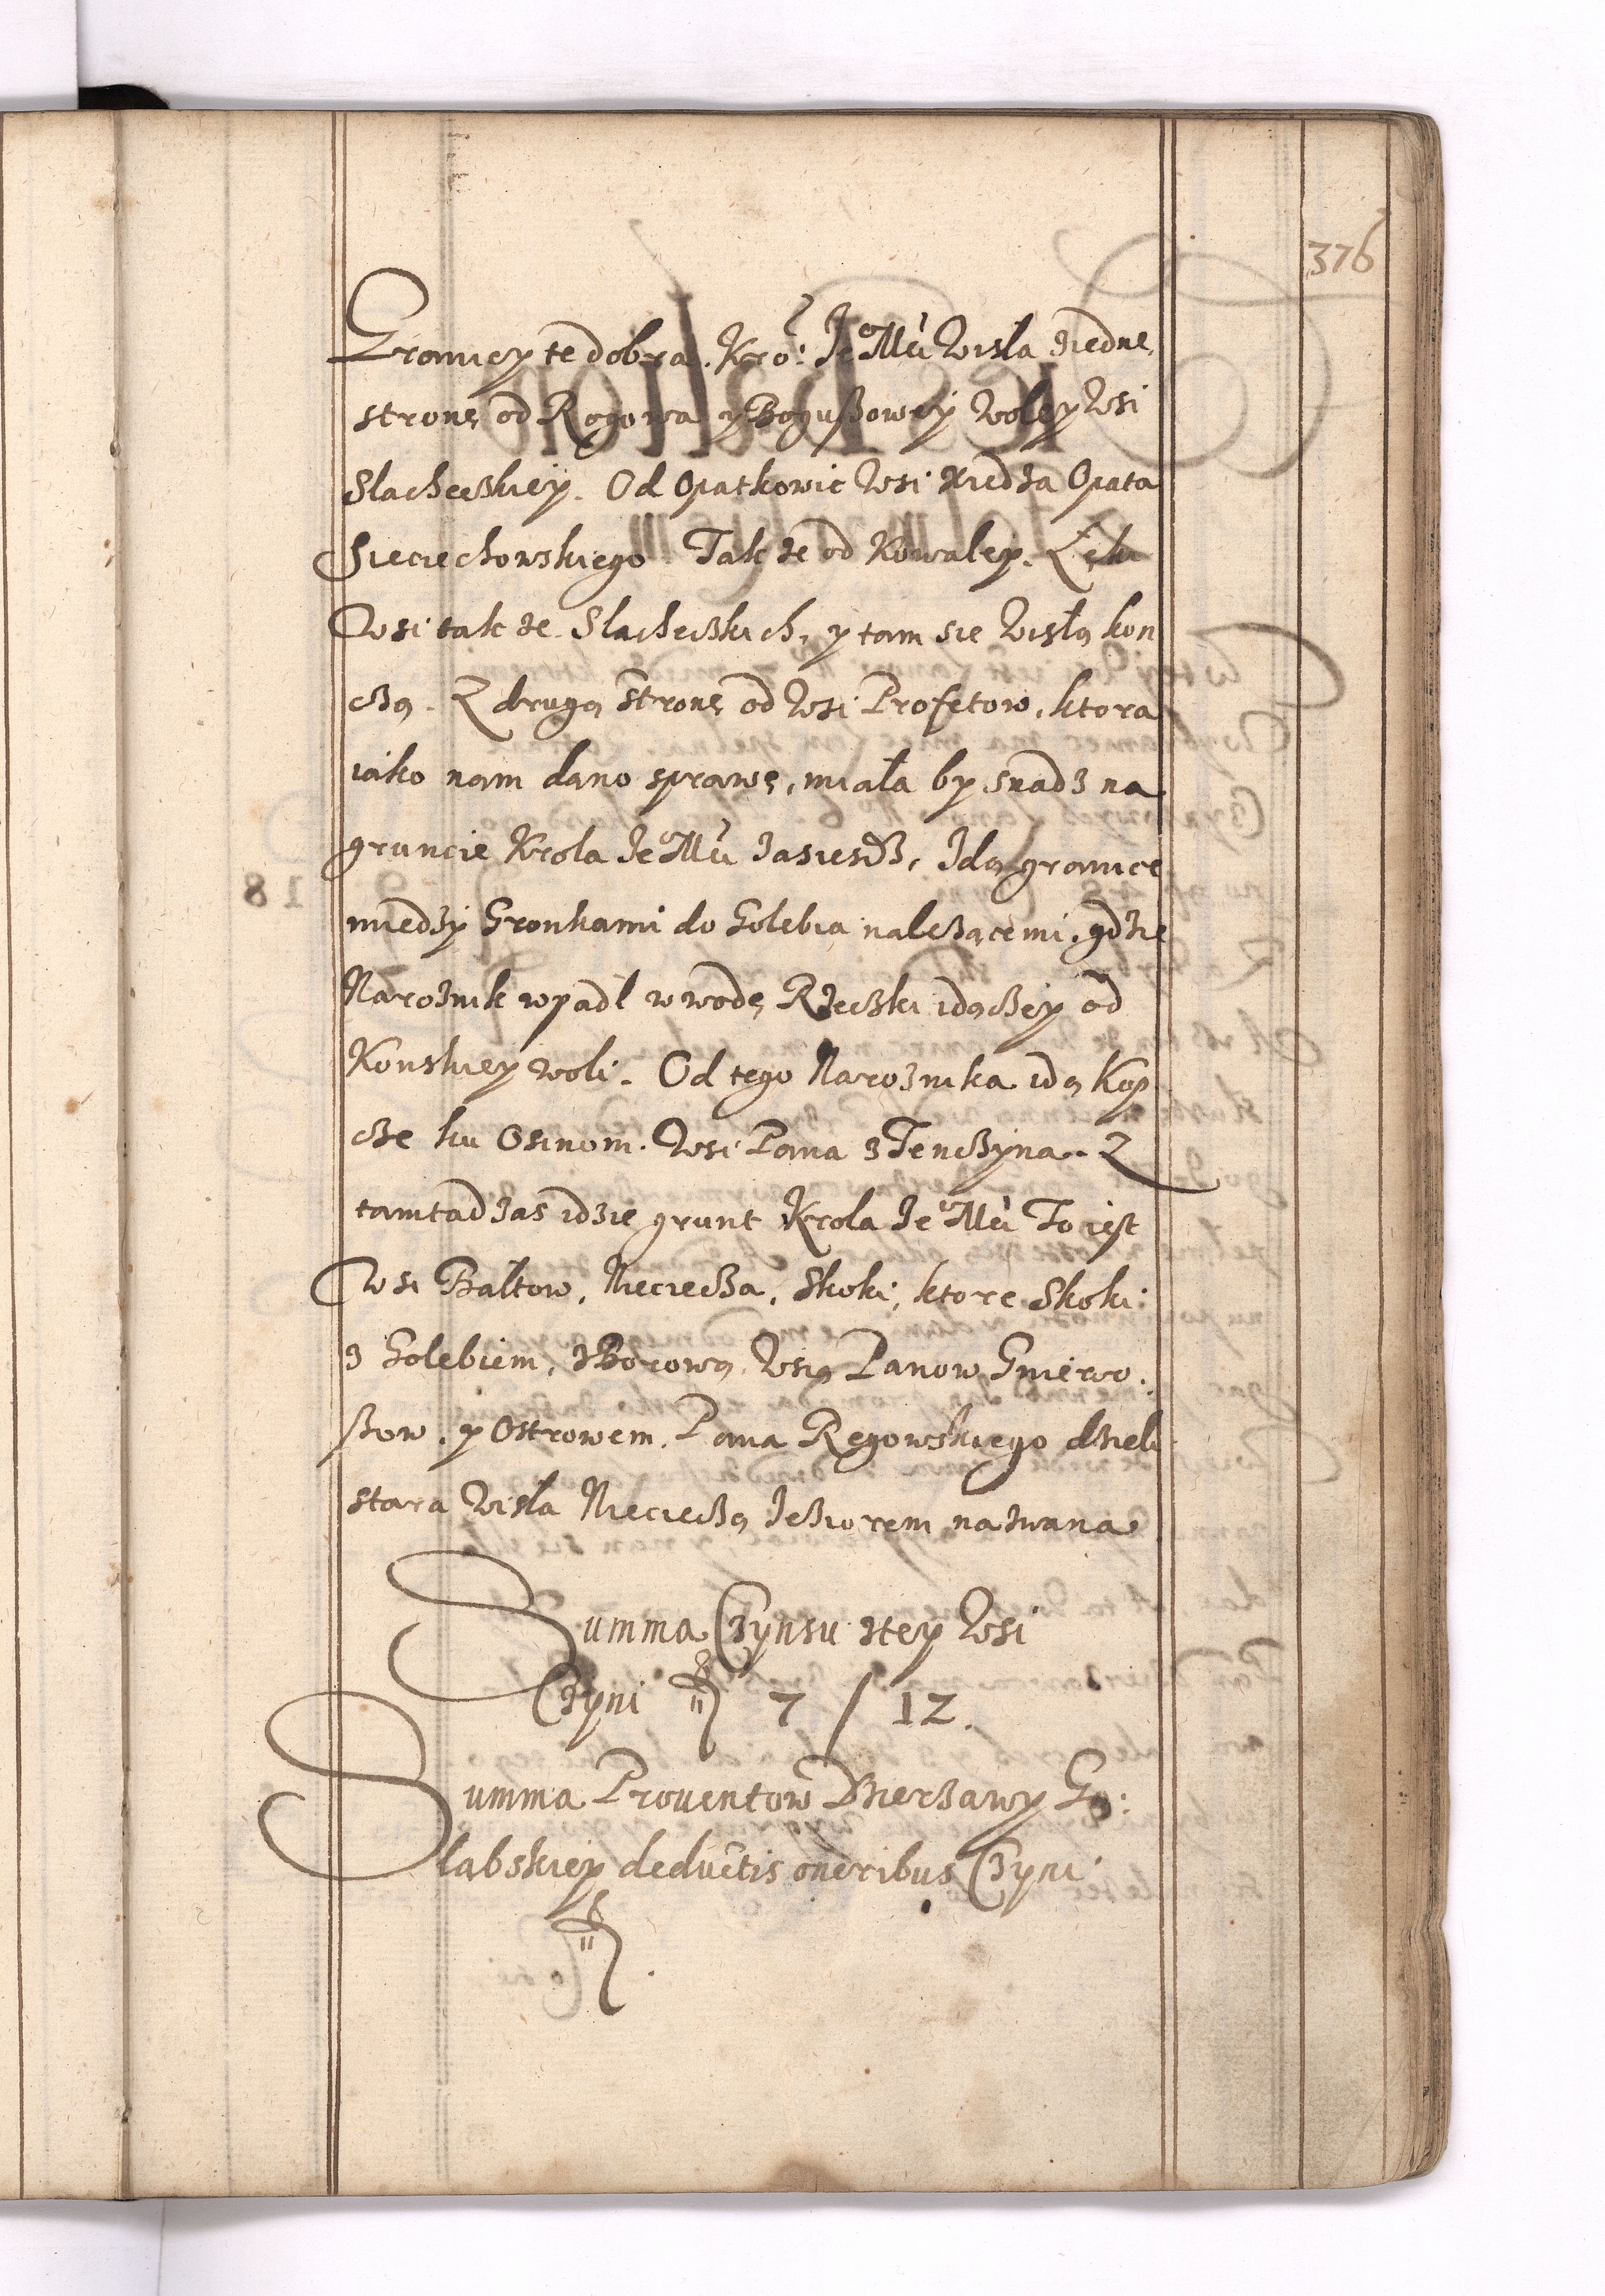 376
Graniczy te dobra Kro: Je° Mći Wisła z iedne
strone od Rogowa y Boguszowey Woley Wsi
Slacheczkiey. Od Opatkowic Wsi Xiedza Opata
Sieciechowskiego Tak ze od Kowaley. Łęki
Wsi tak ze Slacheczkich, y tam sie Wisłą kon
czą. Z drugą strone od Wsi Profetow, ktora
iako nam dano sprawę, miała by snadz na
gruncie Krola Je° Mći zasiesdz, Idą granice
miedzy Gronkami do Golebia należącemi, gdzie
Naroznik wpadł w wodę Rzeczki idączey od
Konskiey woli. Od tego Naroznika idą Kop
cze ku Osinom. Wsi Pana z Tenczyna. Z
tamtąd zas idzie grunt Krola Je° Mći To iest
Wsi Bałtow, Nieciecza, Skoki, ktore Skoki
z Golebiem, z Borową Wsią Panow Gniewo:
szow, y Ostrowem. Pana Regowskiego dzieli
stara Wisła Niecieczą Jeziorem nazwana
Summa Czynsu z tey Wsi
Czyni fl 7 / 12.
Summa Prouentow Dzierzawy Go:
łabskiey deductis oneribus Czyni
fl.